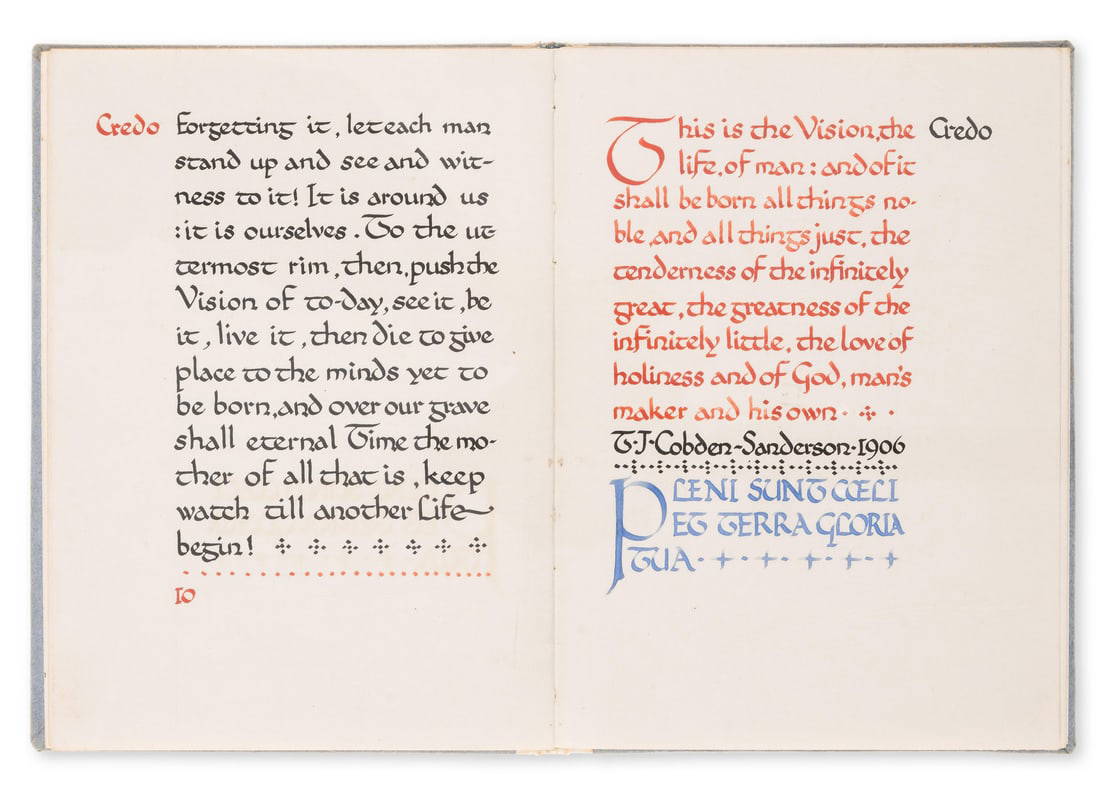 Credo
Forgetting it, let each man
stand up and see and wit-
ness to it! It is around us
: it is ourselves. To the ut
termost rim, then, push the
Vision of to-day, see it, be
it, live it, then die to give
place to the minds yet to
be born, and over our grave
shall eternal Time the mo-
ther of all that is, keep
watch till another Life
begin!
10
This is the Vision, the
life, of man: and of it
shall be born all things no-
ble, and all things just, the
tenderness of the infinitely
great, the greatness of the
infinitely little, the love of
holiness and of God, man's
maker and his own.
Credo
T·J·Cobden-Sanderson·1906
PLENI SUNT CŒLI
ET TERRA GLORIA
TUA·